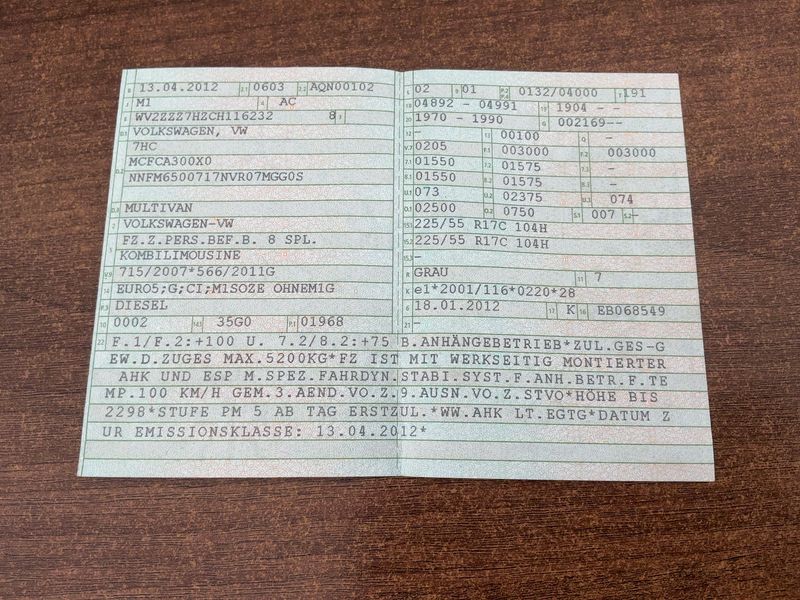 B 13.04.2012 2.1 0603 2.2 AQN00102
J M1 4 AC
E WV2ZZZ7HZCH116232 8 3
D.1 VOLKSWAGEN, VW
7HC
D.2 MCFCA300X0
NNFM6500717NVR07MGG0S
D.3 MULTIVAN
2 VOLKSWAGEN-VW
FZ.Z.PERS.BEF.B. 8 SPL.
5 KOMBILIMOUSINE
V.9 715/2007*566/2011G
14 EURO5;G;CI;M1SOZE OHNEM1G
P.3 DIESEL
10 0002 14.1 35G0 P.1 01968
L 02 9 01 P.2 P.4 0132/04000 T 191
18 04892 - 04991 19 1904 - -
20 1970 - 1990 G 002169--
12 - 13 00100 Q -
V.7 0205 F.1 003000 F.2 003000
7.1 01550 7.2 01575 7.3 -
8.1 01550 8.2 01575 8.3 -
U.1 073 U.2 02375 U.3 074
O.1 02500 O.2 0750 S.1 007 S.2 -
15.1 225/55 R17C 104H
15.2 225/55 R17C 104H
15.3 -
R GRAU 11 7
K e1*2001/116*0220*28
6 18.01.2012 17 K 16 EB068549
21 -
22 F.1/F.2:+100 U. 7.2/8.2:+75 B.ANHÄNGEBETRIEB*ZUL.GES-G
EW.D.ZUGES MAX.5200KG*FZ IST MIT WERKSEITIG MONTIERTER
AHK UND ESP M.SPEZ.FAHRDYN.STABI.SYST.F.ANH.BETR.F.TE
MP.100 KM/H GEM.3.AEND.VO.Z.9.AUSN.VO.Z.STVO*HÖHE BIS
2298*STUFE PM 5 AB TAG ERSTZUL.*WW.AHK LT.EGTG*DATUM Z
UR EMISSIONSKLASSE: 13.04.2012*